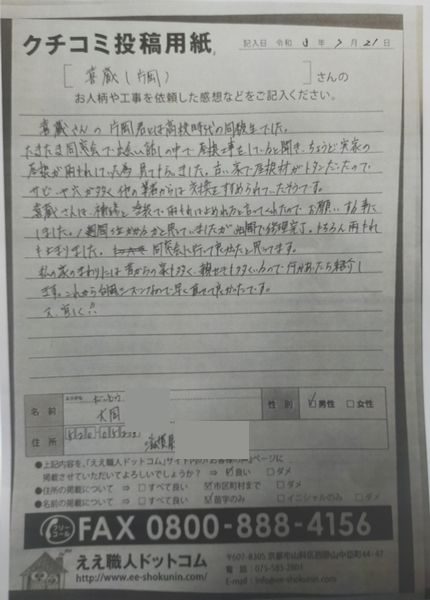 クチコミ投稿用紙
記入日 令和 年 7 月 21 日
[ 喜蔵 (片岡) ] さんの
お人柄や工事を依頼した感想などをご記入ください。
喜蔵さんの片岡君とは高校時代の同級生でした。
たまたま同窓会で 話しの中で屋根工事をしていると聞き、ちょうど実家の
屋根が雨もれしていた為、見てもらいました。古い家で屋根材がトタンだったので
サビや穴が多く他の業者からは交換をすすめられていたそうです。
喜蔵さんは、補修と塗装で雨もれは止めれると言ってくれたのでお願いする事に
しました。1週間 かかると思っていましたが 間で修理完了。もちろん雨もれ
も止まりました。同窓会に行って良かったと思ってます。
私の家のまわりには昔からの家も多く、親せきも多いので何かあったら紹介し
ます。これから台風シーズンなので早く直せて良かったです。
又、宜しく
名前 大岡 性別 ☑男性 □女性
住所 滋賀県
●上記内容を、「ええ職人ドットコム」サイト内の「お客様の声」ページに
掲載させていただいてよろしいでしょうか? ⇒ ☑良い □ダメ
●住所の掲載について ⇒ □すべて良い ☑市区町村まで □ダメ
●名前の掲載について ⇒ □すべて良い ☑苗字のみ □イニシャルのみ □ダメ
フリーコール FAX 0800-888-4156
ええ職人ドットコム
http://www.ee-shokunin.com/
〒607-8305 京都市山科区西野山中臣町44-47
電話:075-583-2801
E-mail:info@ee-shokunin.com